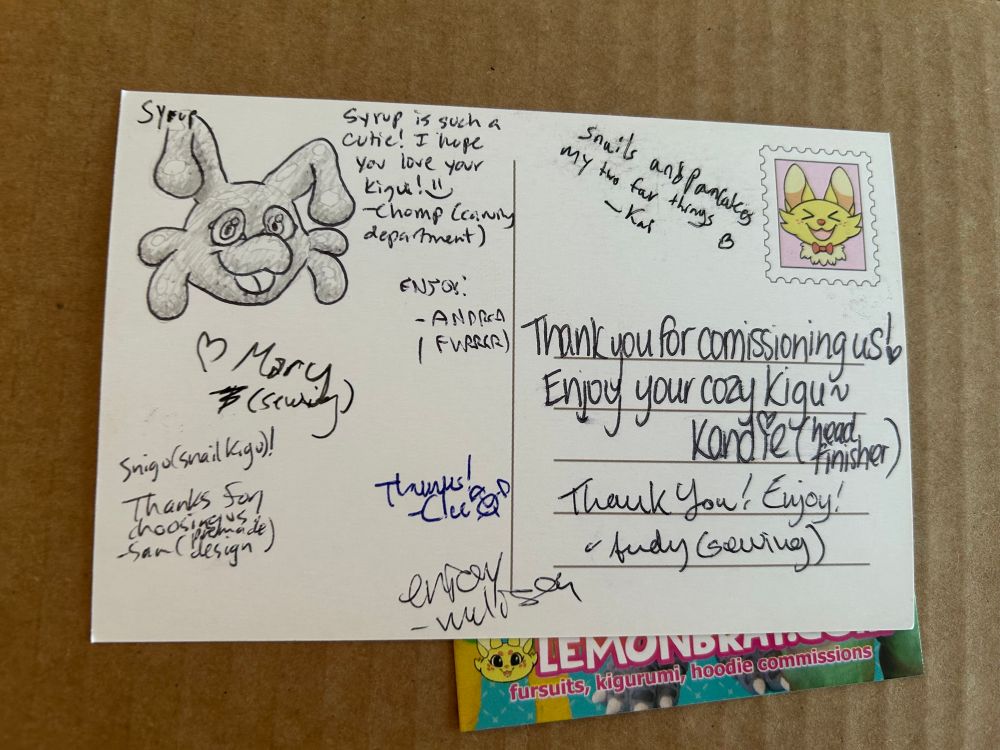 Syrup
Syrup is such a
cutie! I hope
you love your
Kigu!
-Chomp (carving
department)
ENJOY!
- ANDREA
( FURRER)
Mary
(sewing)
Snigu (snail kigu)!
Thanks for
choosing us!
-Sam (premade
design)
Thanks!
-Clee
enjoy
Snails and Pancakes
my two fav things
-Kai
Thank you for comissioning us!
Enjoy your cozy Kigu~
Kandie (head
finisher)
Thank You! Enjoy!
- Andy (sewing)
LEMONBRAT.COM
fursuits, kigurumi, hoodie commissions